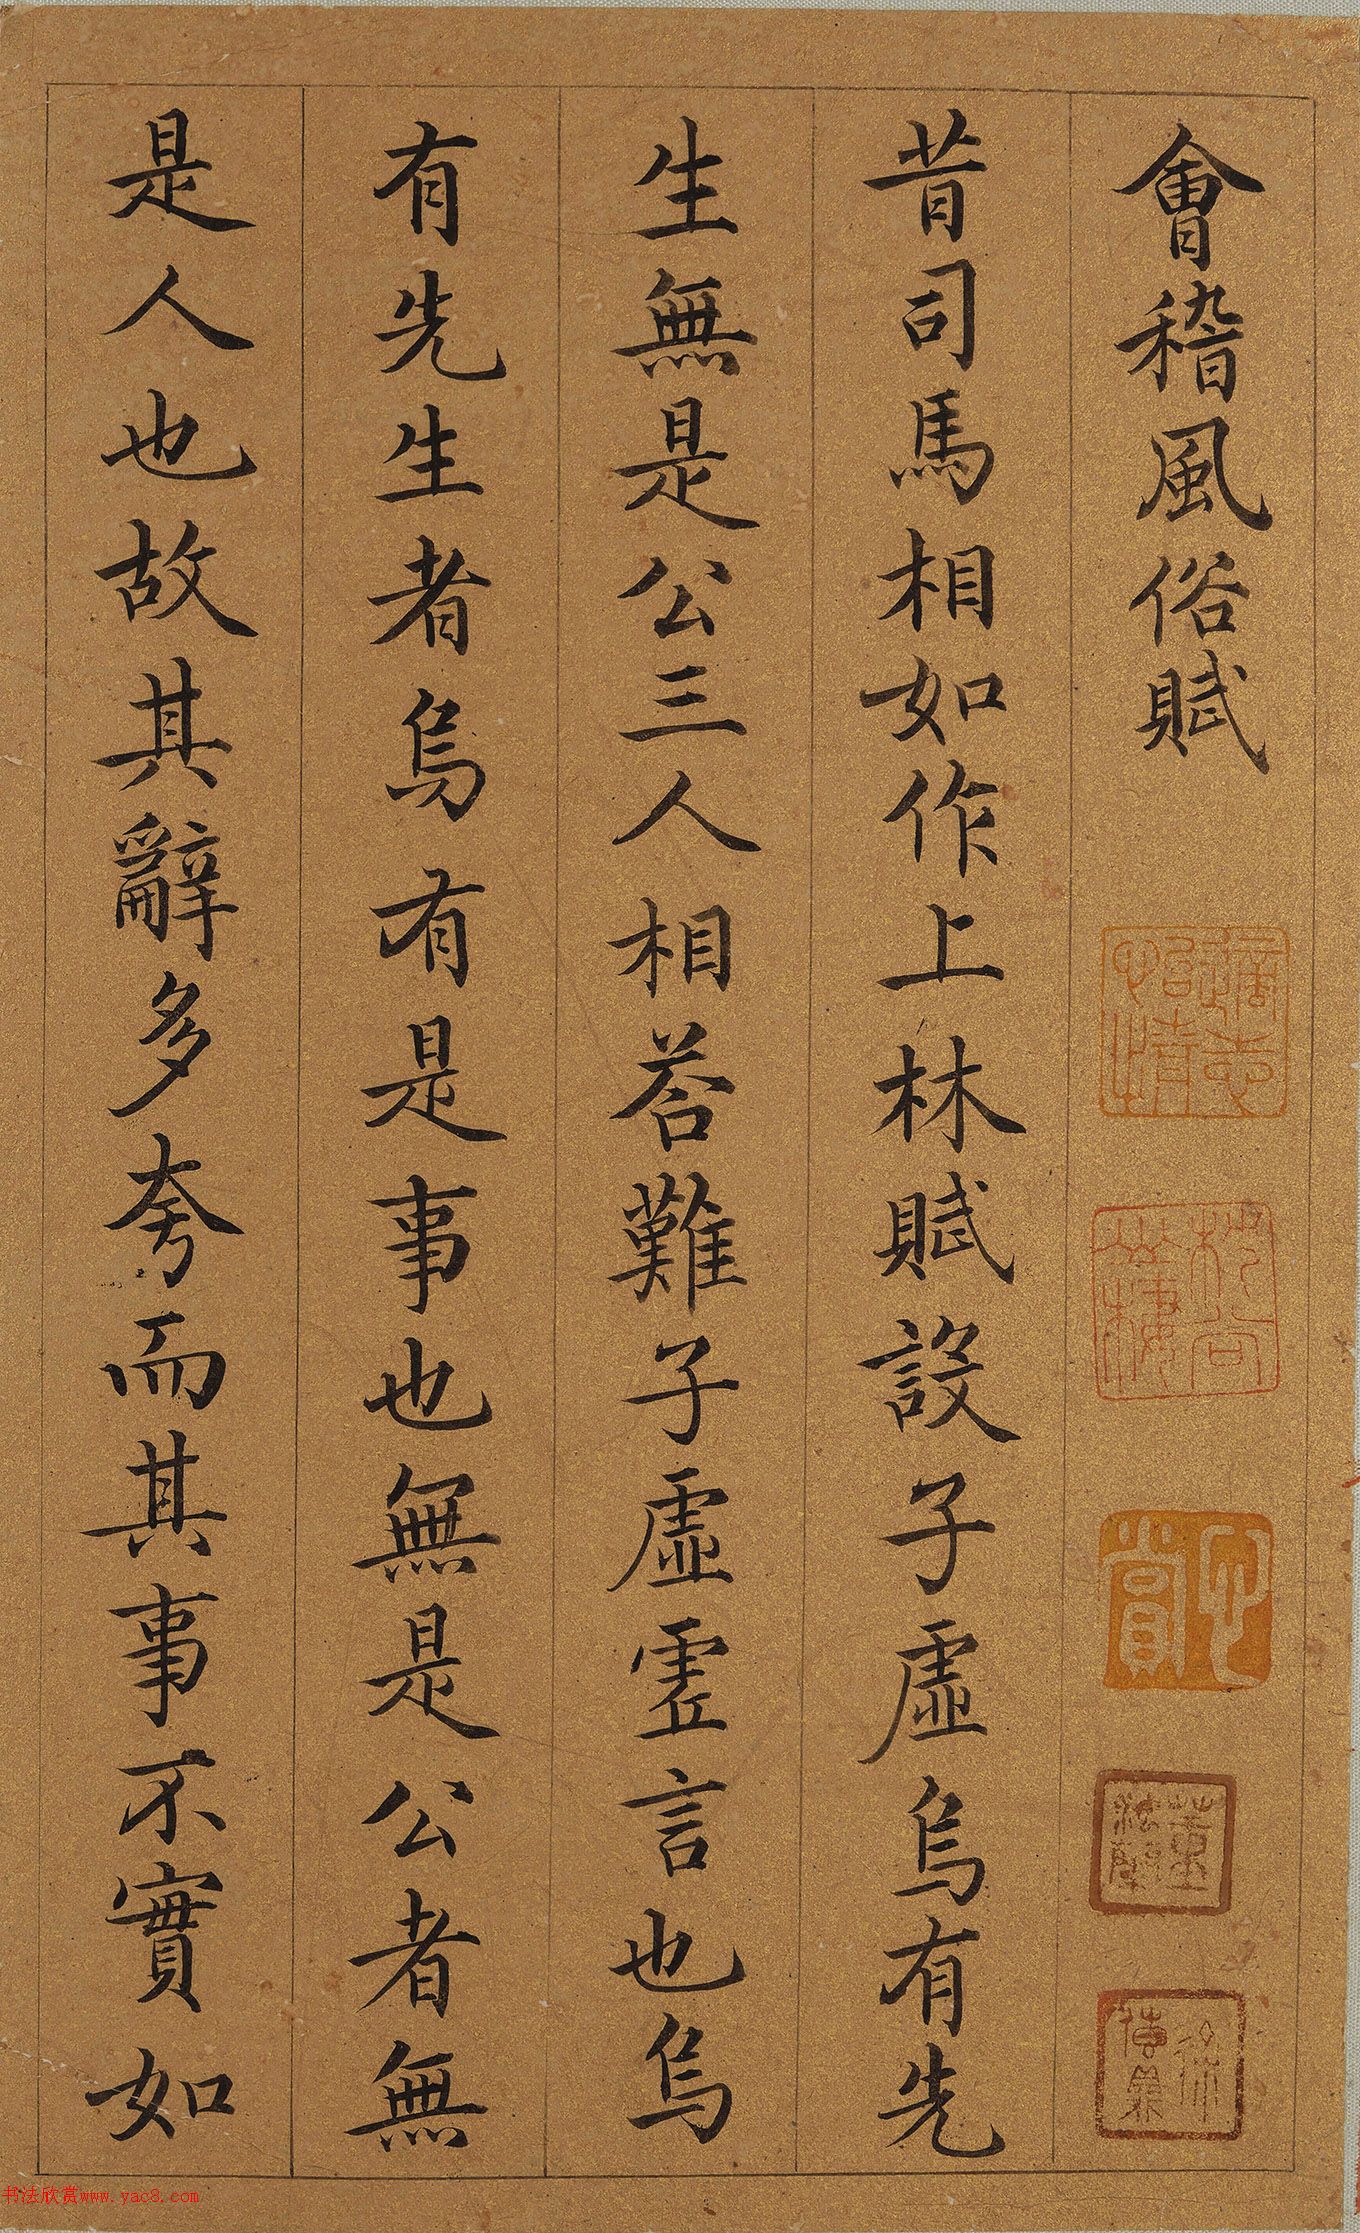 會稽風俗賦
昔司馬相如作上林賦設子虛烏有先
生無是公三人相荅難子虛虛言也烏
有先生者烏有是事也無是公者無
是人也故其辭多夸而其事不實如
心賞
书法欣赏www.yac8.com